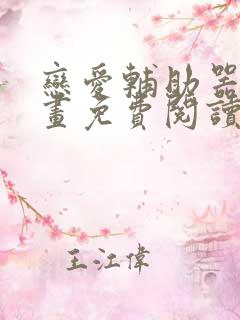 戀愛輔助器
畫免費閱讀
王江偉